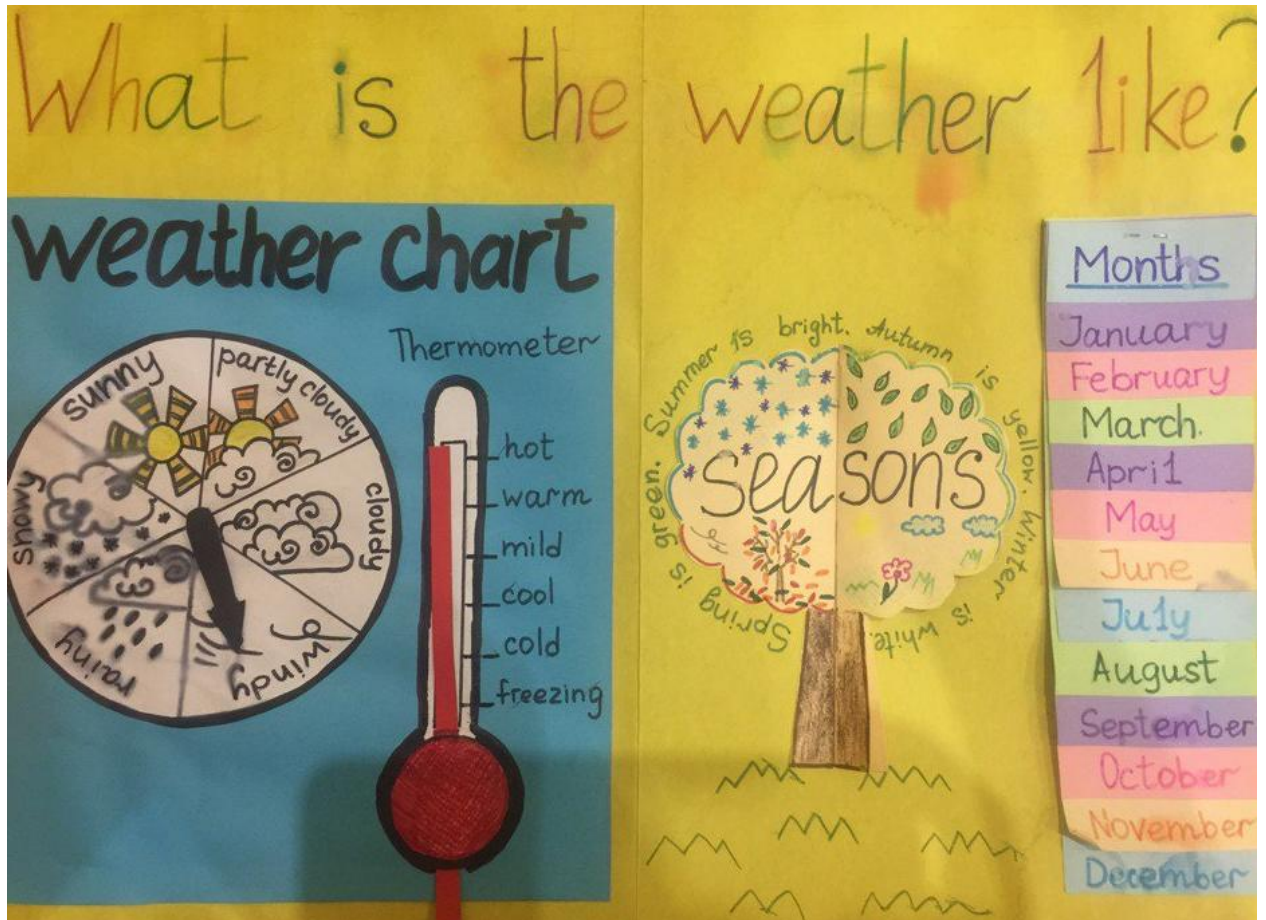 What is the weather like?
weather chart
sunny
partly cloudy
cloudy
windy
rainy
snowy
Thermometer
hot
warm
mild
cool
cold
freezing
Spring is green. Summer is bright. Autumn is yellow. Winter is white.
seasons
Months
January
February
March.
April
May
June
July
August
September
October
November
December